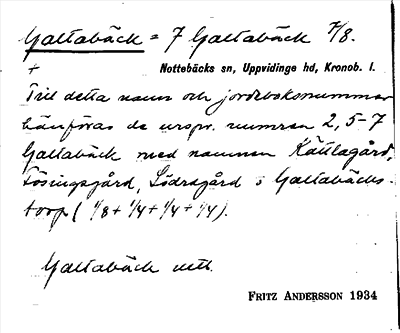 Galtabäck = 7 Galtabäck 7/8.
+ Nottebäcks sn, Uppvidinge hd, Kronob. l.
Till detta namn och jordeboksnummer
hänföras de urspr. numren 2, 5-7
Galtabäck med namnen Källagård,
Tösingsgård, Södragård o Galtabäcks-
torp (1/8 + 1/4 + 1/4 + 1/4).
Galtabäck nett.
FRITZ ANDERSSON 1934